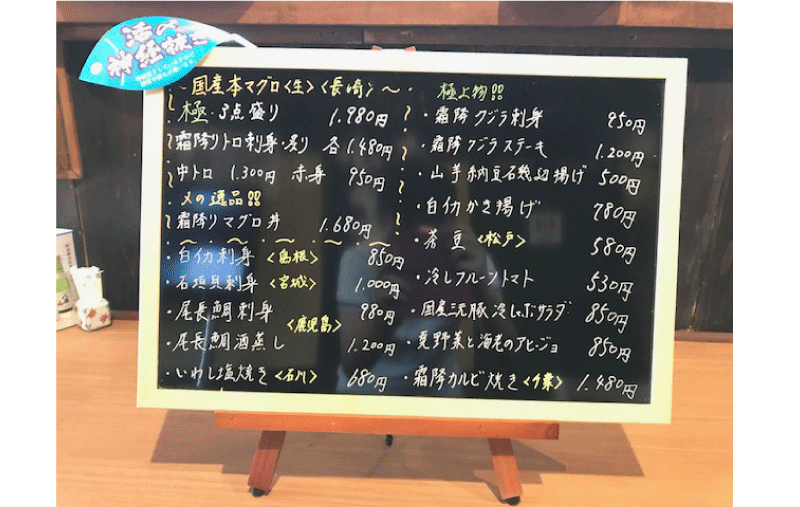 活〆
神経抜き
国産本マグロ〈生〉〈長崎〉
極・3点盛り 1.980円
霜降りトロ刺身・炙り 各1.480円
中トロ 1.300円 赤身 950円
〆の逸品!!
霜降りマグロ丼 1.680円
・白イカ刺身〈島根〉 850円
・石垣貝刺身〈宮城〉 1.000円
・尾長鯛刺身 980円
〈鹿児島〉
・尾長鯛酒蒸し 1.200円
・いわし塩焼き〈石川〉 680円
極上物!!
・霜降クジラ刺身 950円
・霜降クジラステーキ 1.200円
・山芋納豆石幾辺揚げ 500円
・白イカかき揚げ 780円
・茶豆〈松戸〉 580円
・冷しフルーツトマト 530円
・国産三元豚冷しゃぶサラダ 850円
・夏野菜と海老のアヒージョ 850円
・霜降カルビ焼き〈千葉〉 1.480円